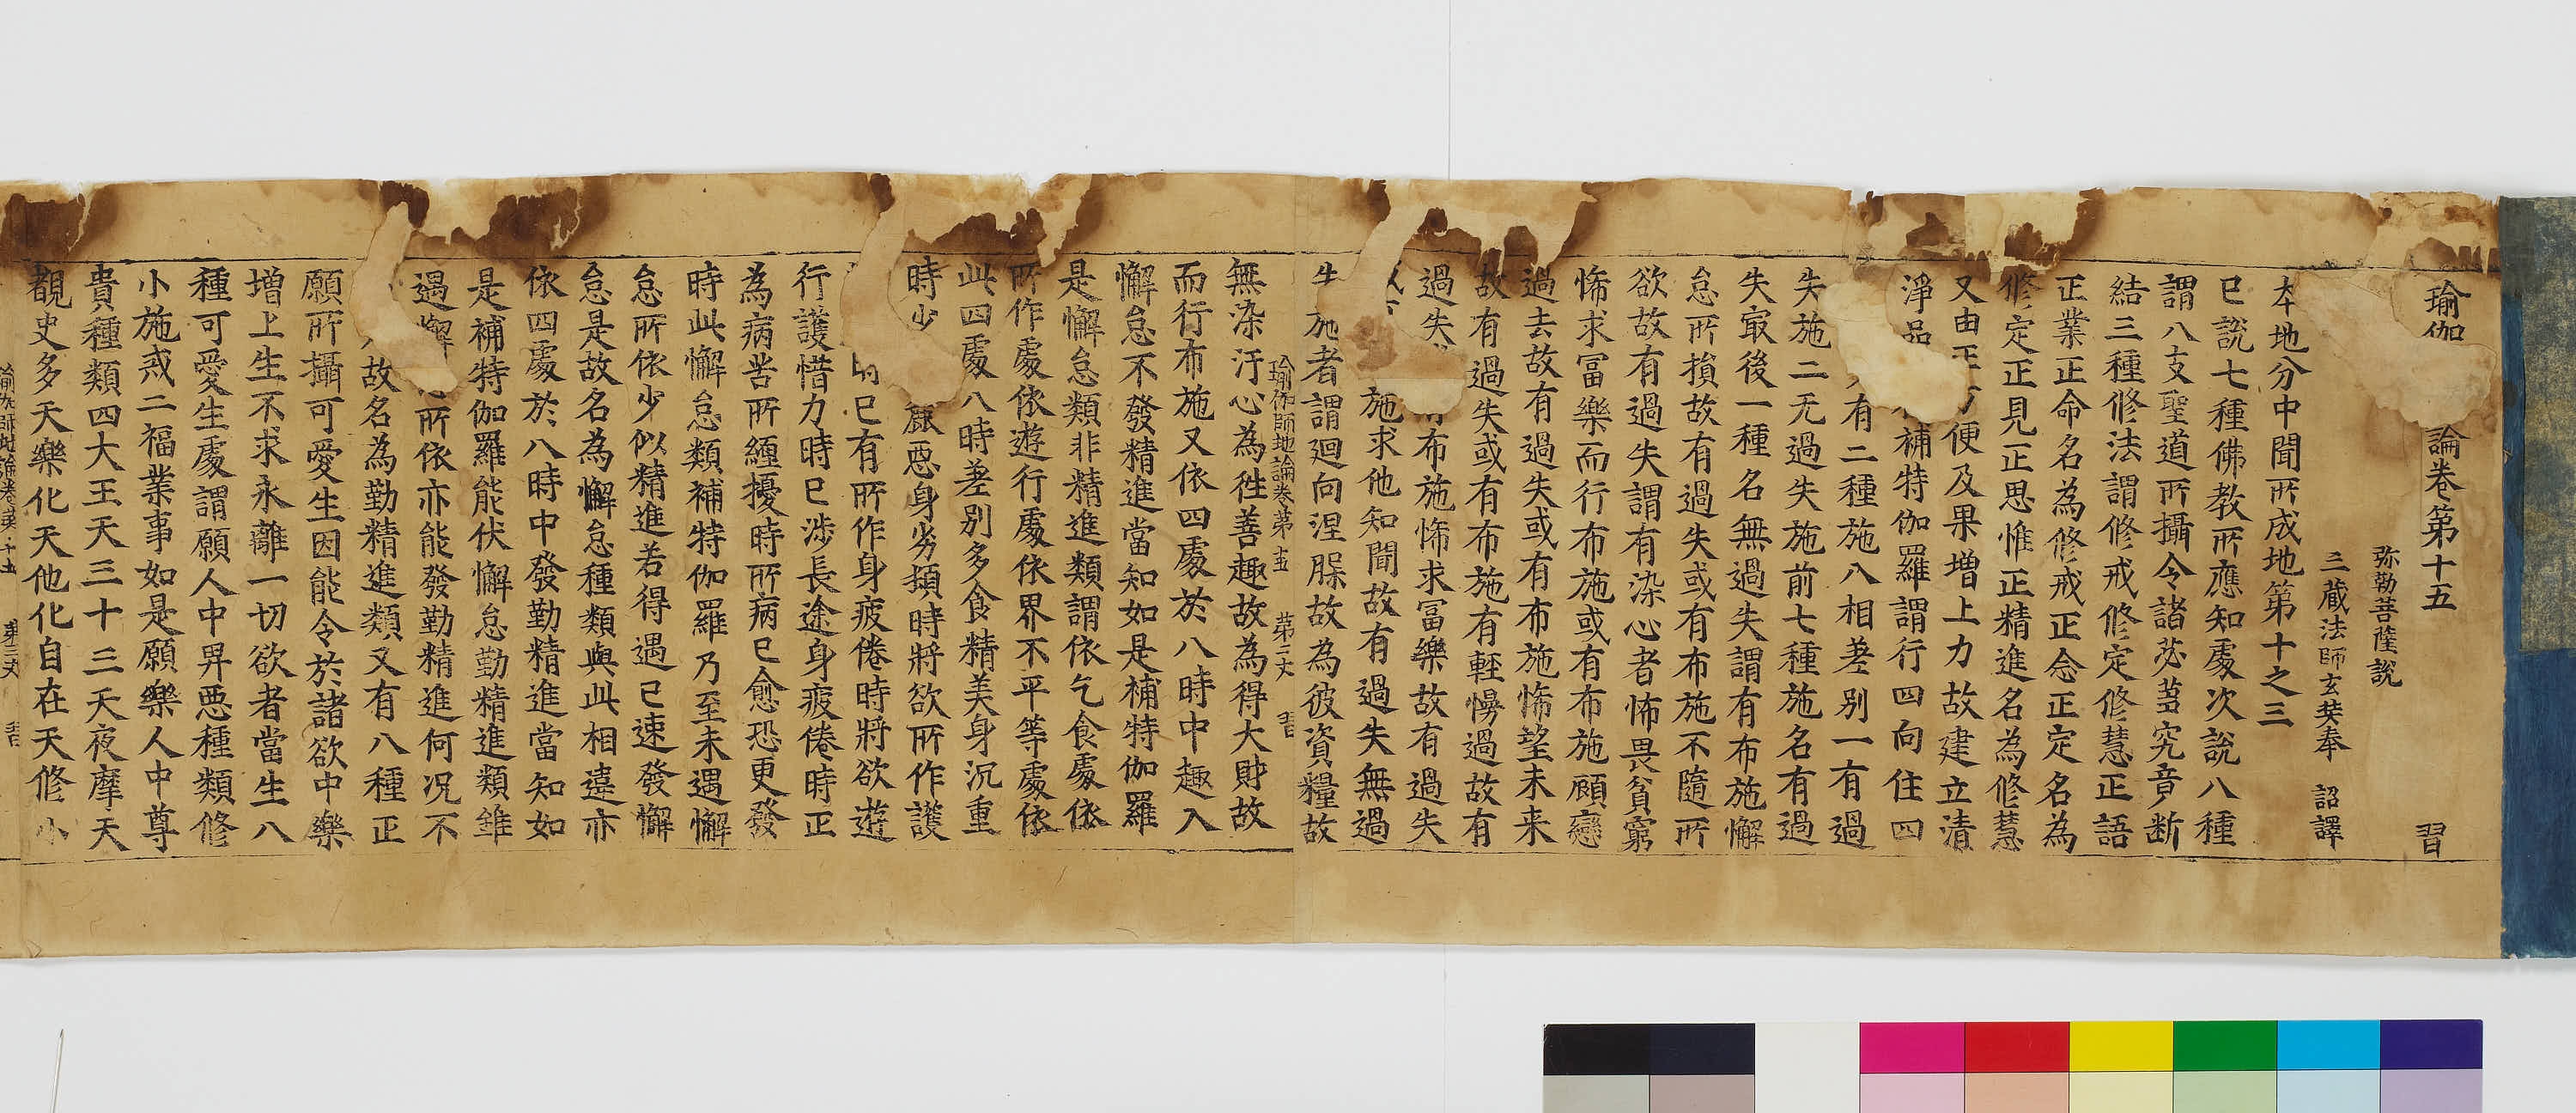 瑜伽論卷第十五 習
弥勒菩薩說
三藏法師玄奘奉 詔譯
本地分中聞所成地第十之三
已說七種佛教所應知處次說八種
謂八支聖道所攝令諸苾芻究竟斷
結三種修法謂修戒修定修慧正語
正業正命名為修戒正念正定名為
修定正見正思惟正精進名為修慧
又由正方便及果增上力故建立清
淨品補特伽羅謂行四向住四
有二種施八相差別一有過
失施二无過失施前七種施名有過
失㝡後一種名無過失謂有布施懈
怠所損故有過失或有布施不隨所
欲故有過失謂有染心者怖畏貧窮
悕求冨樂而行布施或有布施顧戀
過去故有過失或有布施悕望未来
故有過失或有布施有輕慢過故有
過失布施悕求冨樂故有過失
施求他知聞故有過失無過
失施者謂迴向涅槃故為彼資糧故
瑜伽師地論卷第十五 第二丈 習
無染汙心為往善趣故為得大財故
而行布施又依四處於八時中趣入
懈怠不發精進當知如是補特伽羅
是懈怠類非精進類謂依乞食處依
所作處依遊行處依界不平等處依
此四處八時差別多食精美身沉重
時少麁惡身劣頓時將欲所作護
已有所作身疲倦時將欲遊
行護惜力時已涉長途身疲倦時正
為病苦所纏擾時所病已愈恐更發
時此懈怠類補特伽羅乃至未遇懈
怠所依少似精進若得遇已速發懈
怠是故名為懈怠種類與此相違亦
依四處於八時中發勤精進當知如
是補特伽羅能伏懈怠勤精進類雖
遇懈所依亦能發勤精進何況不
故名為勤精進類又有八種正
願所攝可愛生因能令於諸欲中樂
增上生不求永離一切欲者當生八
種可愛生處謂願人中卑惡種類修
小施戒二福業事如是願樂人中尊
貴種類四大王天三十三天夜摩天
覩史多天樂化天他化自在天修小
瑜伽師地論卷第十五 第三丈 習